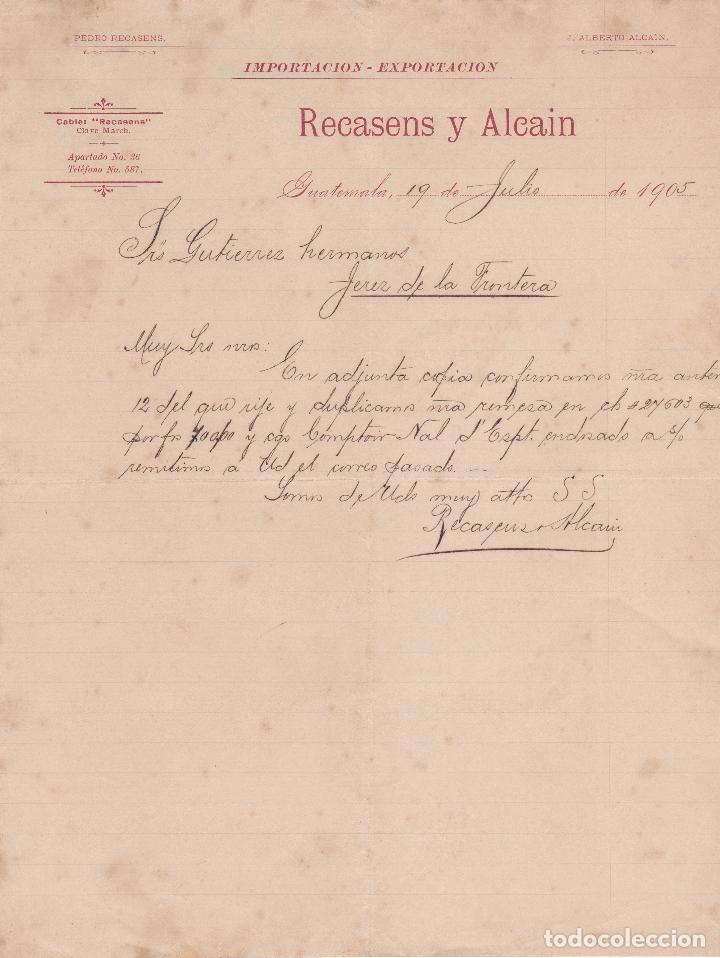 PEDRO RECASENS.
J. ALBERTO ALCAIN.
IMPORTACION - EXPORTACION
Cable: "Recasens"
Clave March.
Apartado No. 36
Teléfono No. 587.
Recasens y Alcain
Guatemala, 19 de Julio de 1905
Srs Gutierrez hermanos
Jerez de la Frontera
Muy Srs nros:
En adjunta copia confirmamos nra anter
12 del que rije y duplicamos nra remesa en ch #27603 que
por fos 700,00 y cgo Comptoir Nal d'Espt. endosado a s/o
remitimos a Ud el correo pasado. —
Somos de Uds muy atto S S
Recasens Alcain
todocoleccion